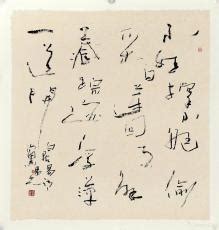 小娃撑小艇偷
采白莲回不解
藏踪迹浮萍
一道开
白居易诗